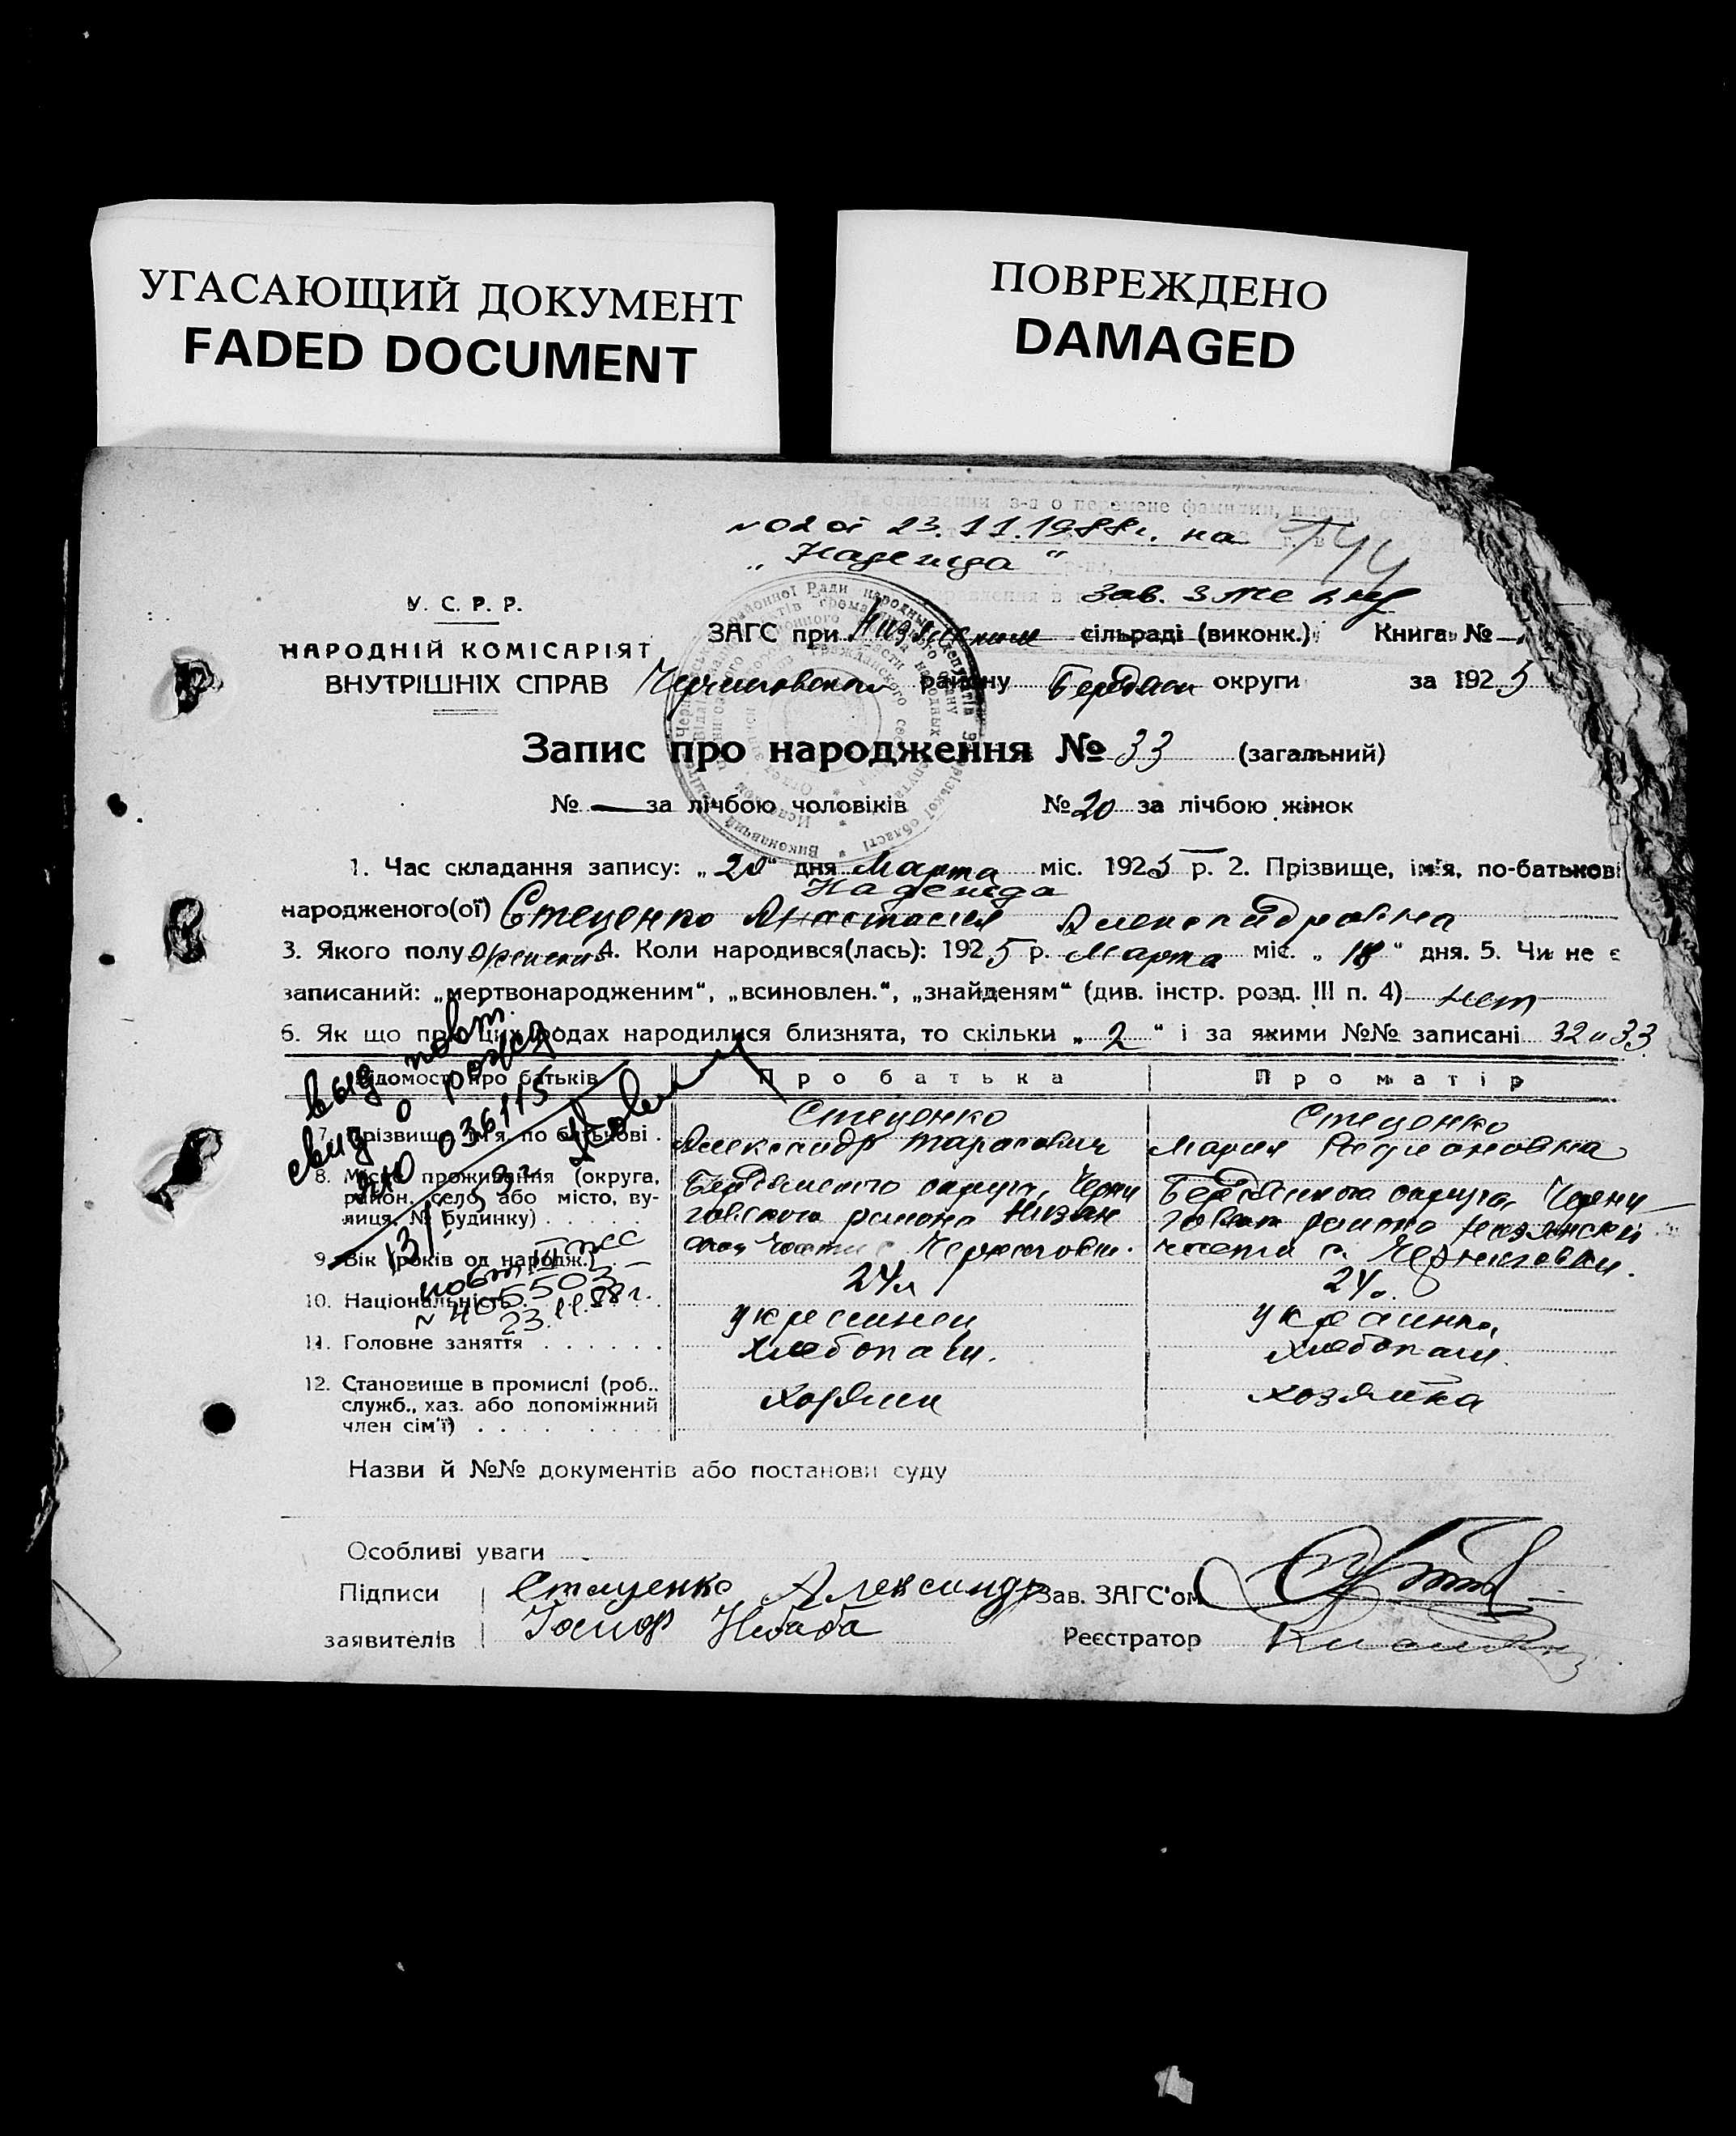 УГАСАЮЩИЙ ДОКУМЕНТ
FADED DOCUMENT
ПОВРЕЖДЕНО
DAMAGED
На основании з-я о перемене фамилии, имени,
№ 02 от 23.11.1988г. на
„Надежда“
Зав.
У. С. Р. Р.
НАРОДНІЙ КОМІСАРІЯТ
ВНУТРІШНІХ СПРАВ
ЗАГС при сільраді (виконк.) Книга №
Черниговского району Бердян округи за 1925
Запис про народження № 33 (загальний)
№ — за лічбою чоловіків № 20 за лічбою жінок
1. Час складання запису: „20“ дня Марта міс. 1925 р. 2. Прізвище, ім'я, по-батькові
Надежда
народженого(ої) Стеценко Анастасия Александровна
3. Якого полу женск 4. Коли народився(лась): 1925 р. Марта міс. „18“ дня. 5. Чи не є
записаний: „мертвонародженим“, „всиновлен.“, „знайденям“ (див. інстр. розд. III п. 4) нет
6. Як що при цих родах народилися близнята, то скільки „2“ і за якими №№ записані 32 и 33
Відомості про батьків
Про батька
Про матір
выд. повт.
свид о рожд
036115
7. Прізвище, ім'я, по батькові
Стеценко
Александр Тарасович
Стеценко
Мария
8. Місце проживання (округа, район, село або місто, вулиця, № будинку)
Бердянского округа, Черни
говского района
части с Черниговки.
Бердянского округа Черни
района
части с. Черниговки.
9. Вік (років од народж.)
24л
24.
повт
23.11.88г.
10. Національність
украинец
украинка
11. Головне заняття
Хлебопаш.
Хлебопаш.
12. Становище в промислі (роб., служб., хаз. або допоміжний член сім'ї)
Хозяин
хозяйка
Назви й №№ документів або постанови суду
Особливі уваги
Підписи
заявителів
Стаценко Александр
Зав. ЗАГС'ом
Реєстратор